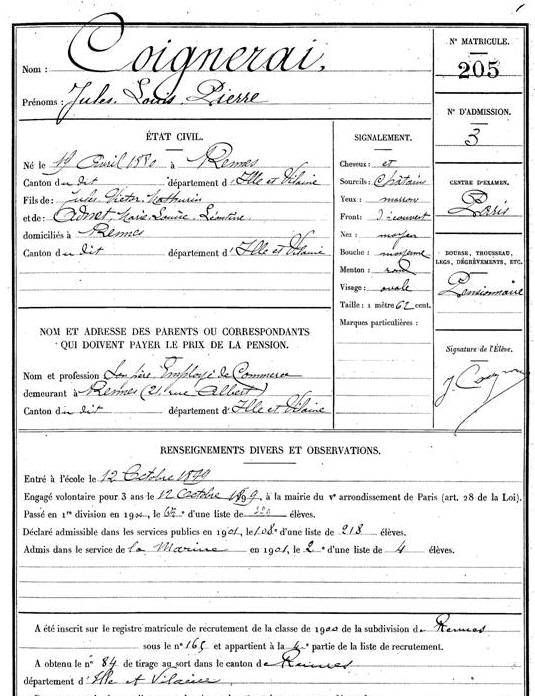 Nom : Coignerai,
Prénoms : Jules Louis Pierre
N° MATRICULE.
205
N° D'ADMISSION.
3
CENTRE D'EXAMEN.
Paris
BOURSE, TROUSSEAU,
LEGS, DÉGRÈVEMENTS, ETC.
Pensionnaire
Signature de l'Élève.
J. Coignerai
ÉTAT CIVIL.
Né le 19 Avril 1880 à Rennes
Canton du dit département d'Ille et Vilaine
Fils de : Jules Victor Mathurin
et de : Adnet, Marie Louise Léontine
domiciliés à Rennes
Canton du dit département d'Ille et Vilaine
SIGNALEMENT.
Cheveux : et
Sourcils : Châtain
Yeux : marron
Front : découvert
Nez : moyen
Bouche : moyenne
Menton : rond
Visage : ovale
Taille : 1 mètre 62 cent.
Marques particulières :
NOM ET ADRESSE DES PARENTS OU CORRESPONDANTS
QUI DOIVENT PAYER LE PRIX DE LA PENSION.
Nom et profession Son père, Employé de Commerce
demeurant à Rennes (21, rue Albert)
Canton du dit département d'Ille et Vilaine
RENSEIGNEMENTS DIVERS ET OBSERVATIONS.
Entré à l'école le 12 Octobre 1899
Engagé volontaire pour 3 ans le 12 Octobre 1899, à la mairie du Ve arrondissement de Paris (art. 28 de la Loi).
Passé en 1re division en 1900, le 67e d'une liste de 220 élèves.
Déclaré admissible dans les services publics en 1901, le 108e d'une liste de 218 élèves.
Admis dans le service de la Marine en 1901, le 2e d'une liste de 4 élèves.
A été inscrit sur le registre matricule de recrutement de la classe de 1900 de la subdivision de Rennes
sous le n° 165 et appartient à la 4e partie de la liste de recrutement.
A obtenu le n° 84 de tirage au sort dans le canton de Rennes
département d'Ille et Vilaine